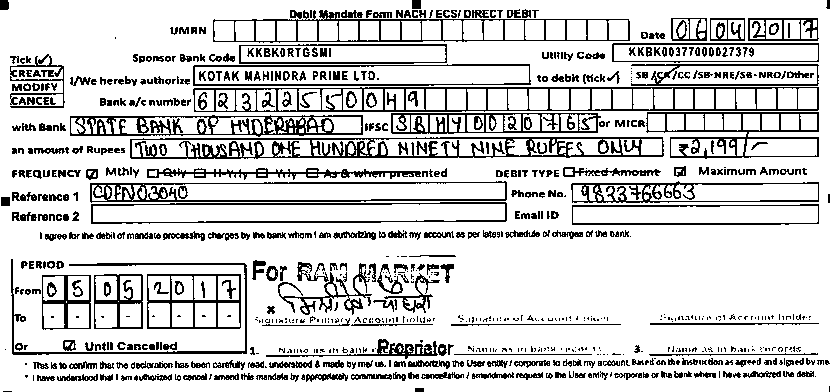 Debit Mandate Form NACH / ECS/ DIRECT DEBIT
UMRN Date 06042017
Tick (✓) Sponsor Bank Code KKBK0RTGSMI Utility Code KKBK00377000027379
CREATE✓ I/We hereby authorize KOTAK MAHINDRA PRIME LTD. to debit (tick✓) SB/CA/CC/SB-NRE/SB-NRO/Other
MODIFY
CANCEL Bank a/c number 62322550049
with Bank STATE BANK OF HYDERABAD IFSC SBHY0020765 or MICR
an amount of Rupees TWO THOUSAND ONE HUNDRED NINETY NINE RUPEES ONLY ₹2,199/-
FREQUENCY ☑ Mthly ☐ Qtly ☐ H-Yrly ☐ Yrly ☐ As & when presented DEBIT TYPE ☐ Fixed Amount ☑ Maximum Amount
Reference 1 CDFN03040 Phone No. 9833766663
Reference 2 Email ID
I agree for the debit of mandate processing charges by the bank whom I am authorizing to debit my account as per latest schedule of charges of the bank.
PERIOD
For RAM MARKET
From 05052017
To - - - - - - - -
Signature Primary Account holder Signature of Account holder Signature of Account holder
Or ☑ Until Cancelled
Proprietor
1. Name as in bank records Name as in bank records 3. Name as in bank records
• This is to confirm that the declaration has been carefully read, understood & made by me/ us. I am authorizing the User entity / corporate to debit my account. Based on the instruction as agreed and signed by me.
• I have understood that I am authorized to cancel / amend this mandate by appropriately communicating the cancellation / amendment request to the User entity / corporate or the bank where I have authorized the debit.